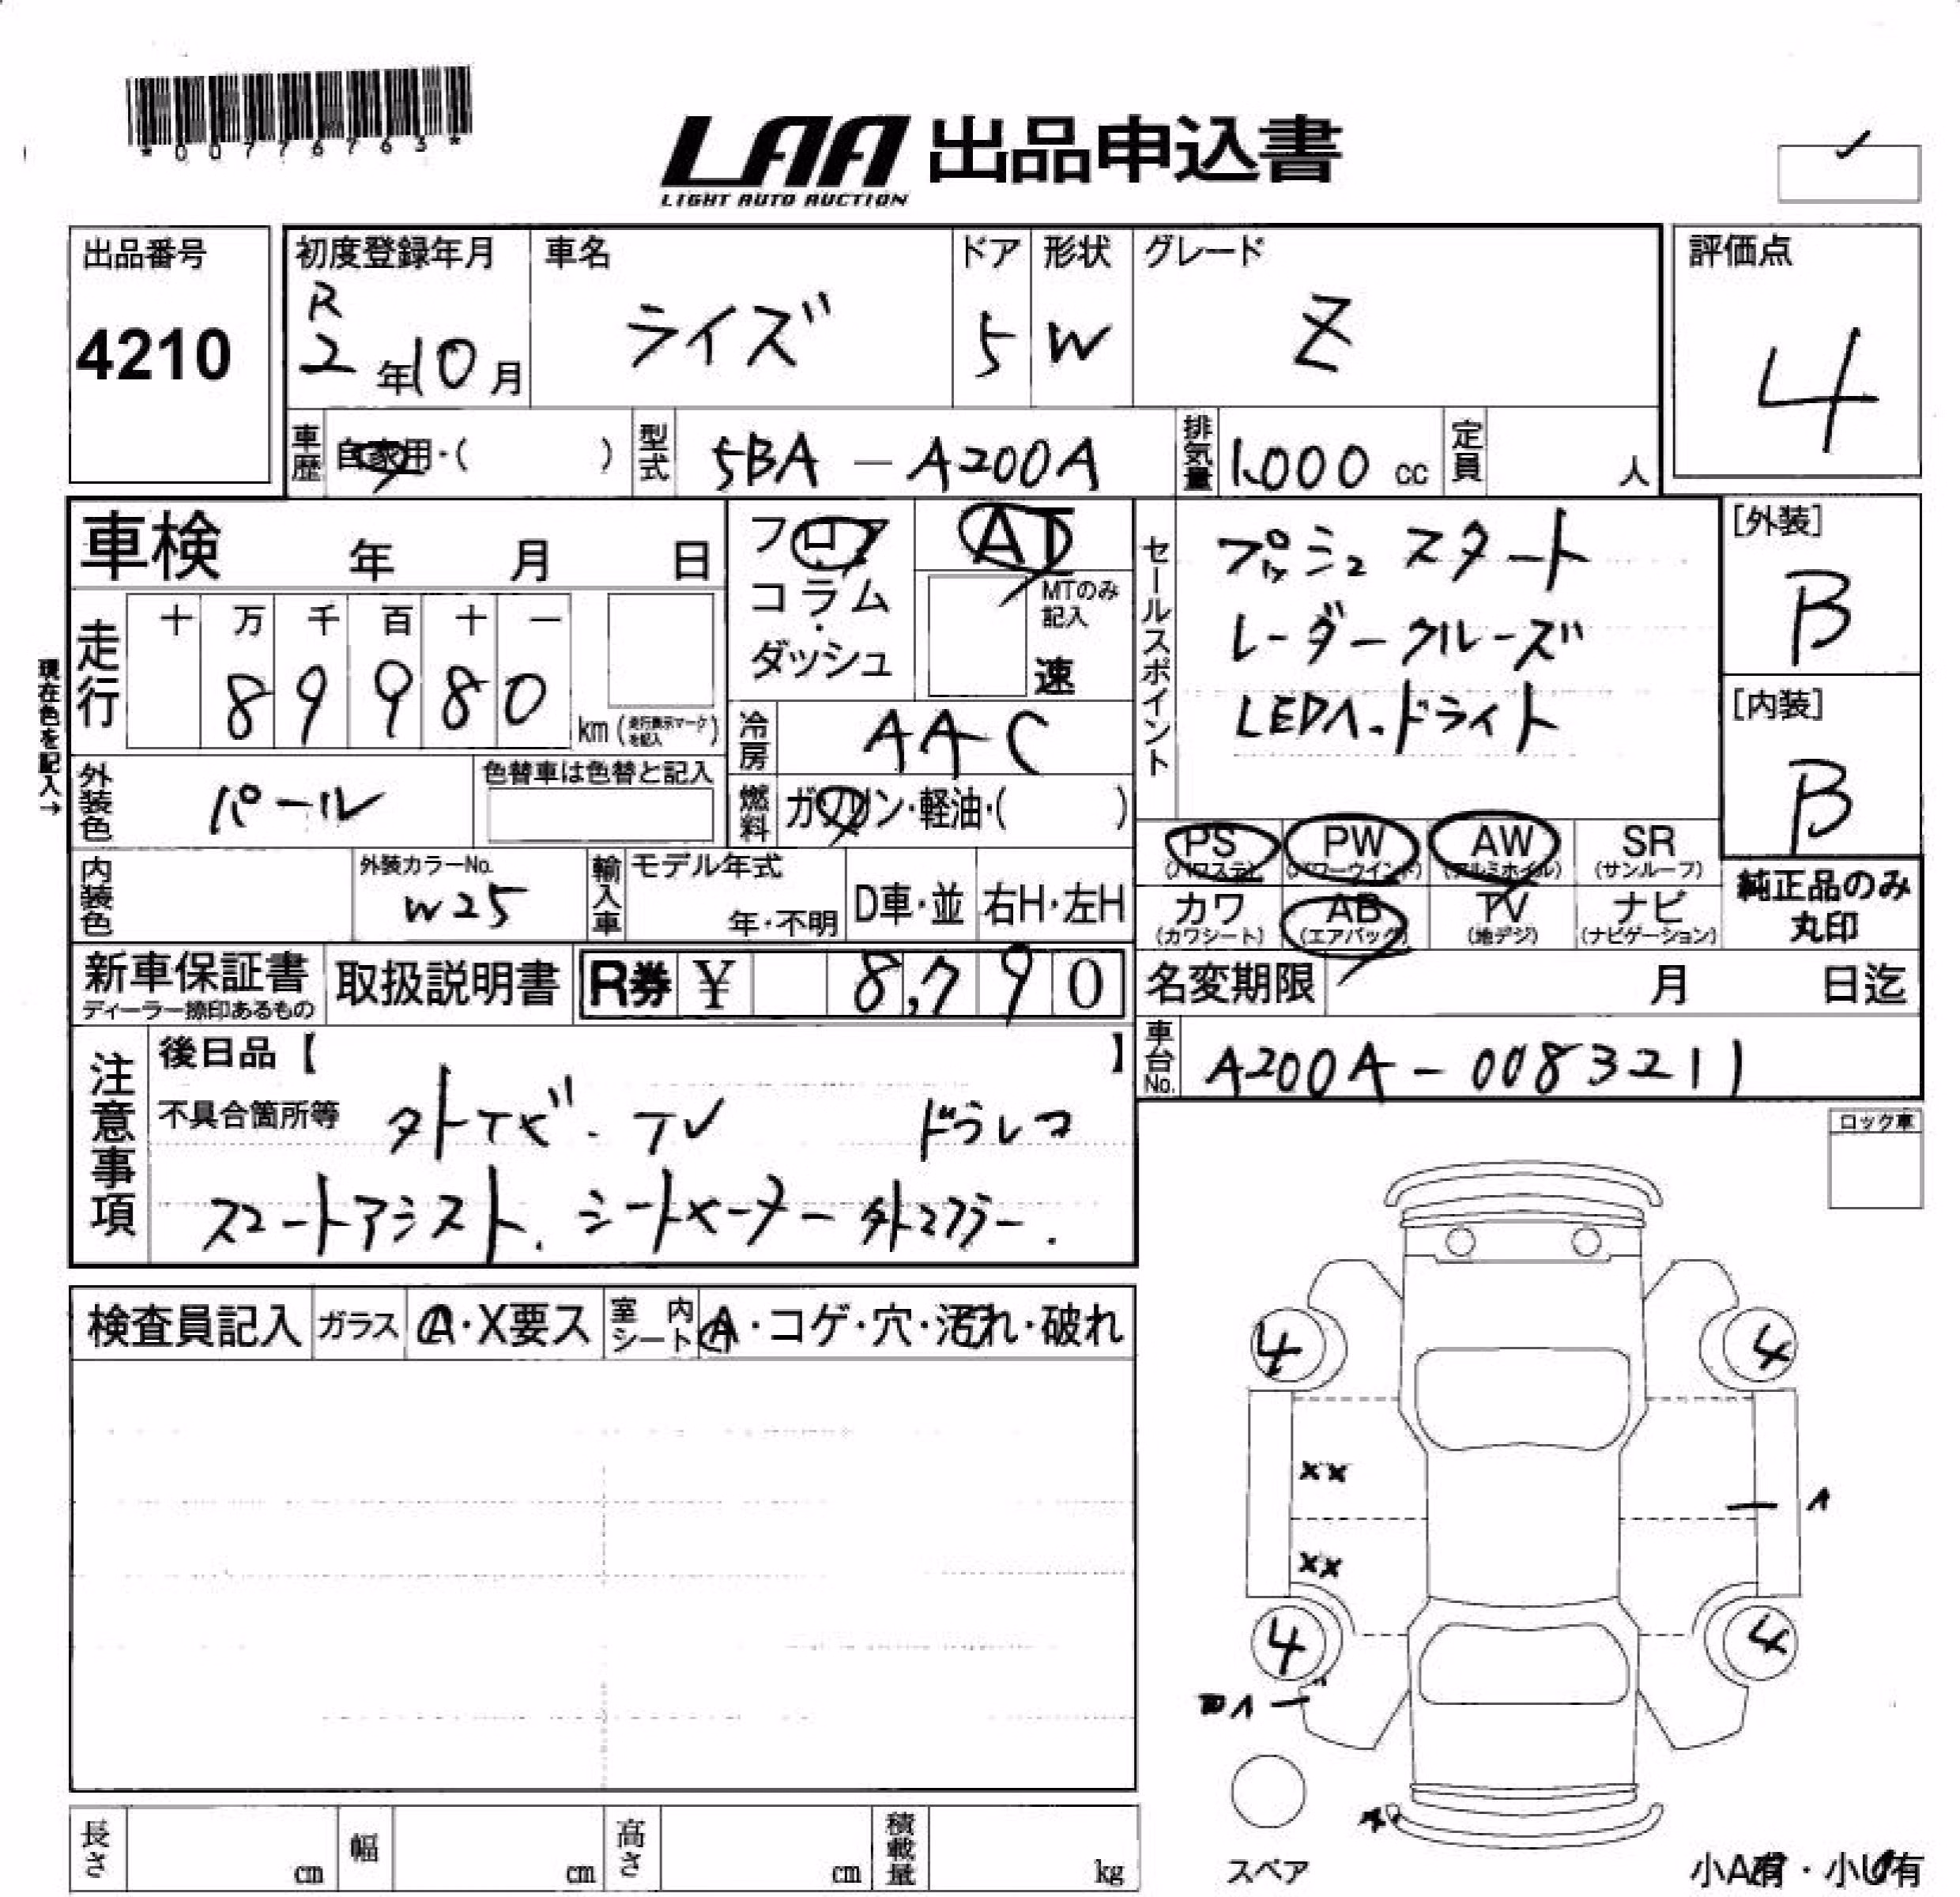 *00776763*
LAA 出品申込書
LIGHT AUTO AUCTION
出品番号
4210
初度登録年月
R
2年10月
車名
ライズ
ドア
5
形状
W
グレード
Z
評価点
4
車歴
自家用・( )
型式
5BA - A200A
排気量
1.000 cc
定員
人
車検 年 月 日
フロア
コラム
・
ダッシュ
AT
MTのみ
記入
速
セールスポイント
プッシュスタート
レーダークルーズ
LEDヘ.ドライト
[外装]
B
[内装]
B
現在色を記入→
走行
十 万 千 百 十 一
8 9 9 8 0
km (走行表示マークを記入)
冷房
AAC
燃料
ガソリン・軽油・( )
外装色
パール
色替車は色替と記入
PS
(パワステ)
PW
(パワーウインド)
AW
(アルミホイル)
SR
(サンルーフ)
カワ
(カワシート)
AB
(エアバック)
TV
(地デジ)
ナビ
(ナビゲーション)
純正品のみ
丸印
内装色
外装カラーNo.
W25
輸入車
モデル年式
年・不明
D車・並
右H・左H
新車保証書
ディーラー捺印あるもの
取扱説明書
R券 ¥ 8,790
名変期限 月 日迄
車台No.
A200A-0083211
注意事項
後日品【 】
不具合箇所等
外ナビ. TV ドラレコ
スマートアシスト. シートメーター 外ミラー.
ロック車
検査員記入
ガラス
A・X要ス
室内
シート
A・コゲ・穴・汚れ・破れ
4
4
XX
A
XX
4
4
スペア
長さ
cm
幅
cm
高さ
cm
積載量
kg
小A有・小U有